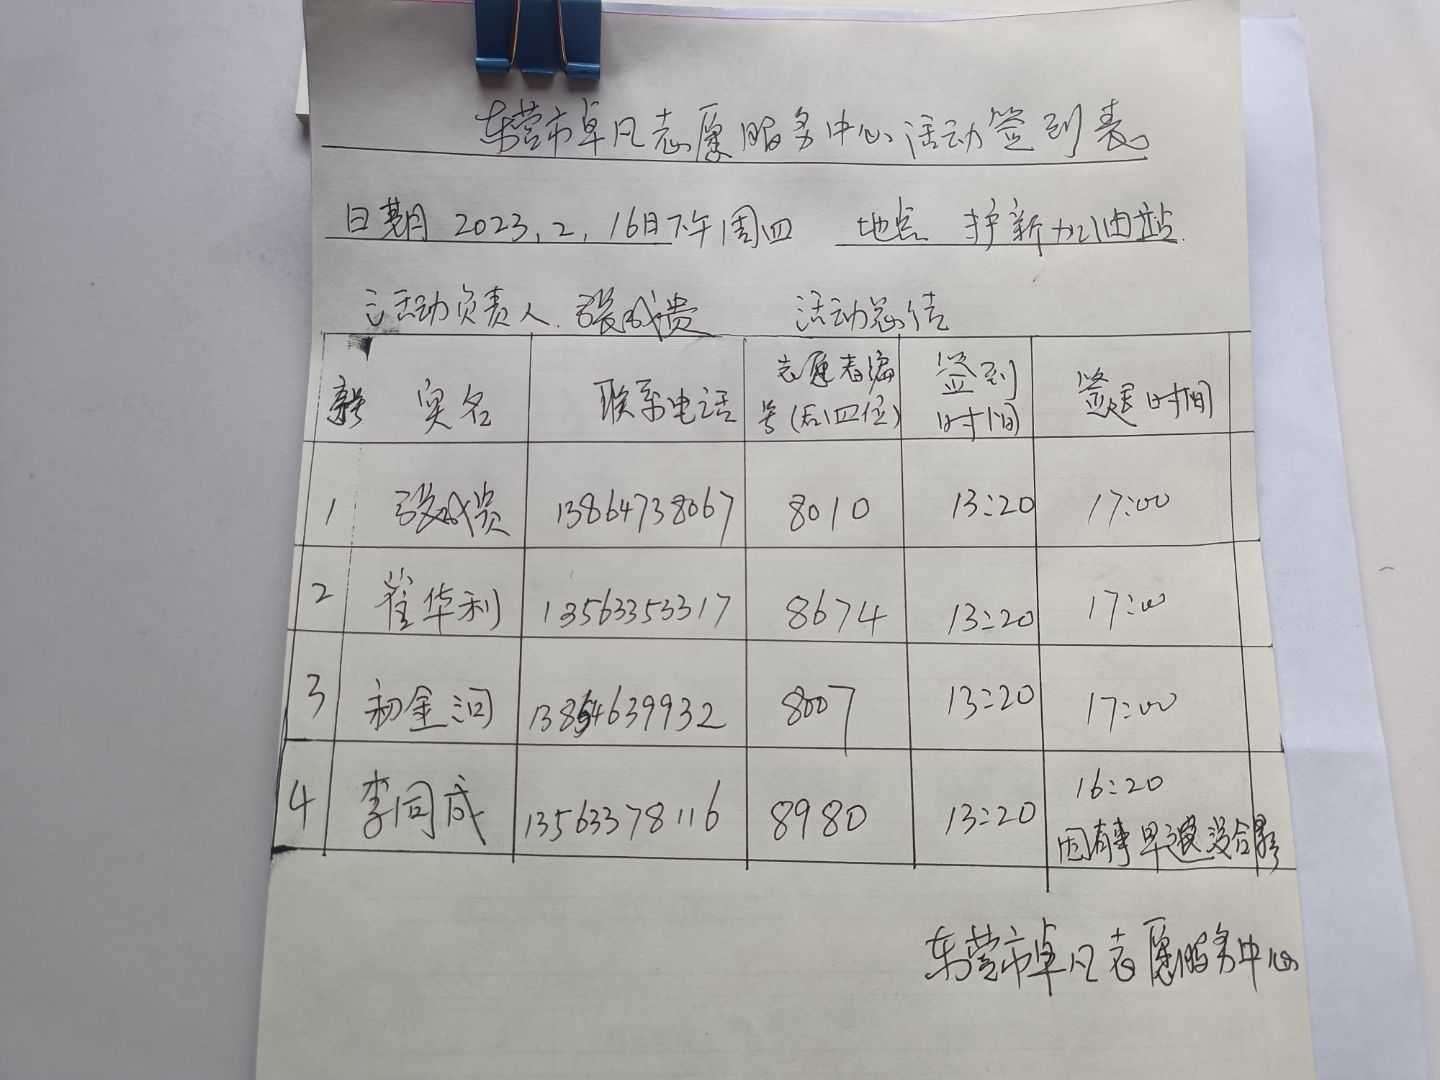 东营市卓凡志愿服务中心活动签到表
日期 2023.2.16日下午周四 地点 护新加油站
活动负责人 张成贵 活动总结
序号 实名 联系电话 志愿者编号(后四位) 签到时间 签退时间
1 张成贵 13864738067 8010 13:20 17:00
2 崔华利 13563353317 8674 13:20 17:00
3 初金河 13854639932 8007 13:20 17:00
4 李同成 13563378116 8980 13:20 16:20
因有事早退没合影
东营市卓凡志愿服务中心